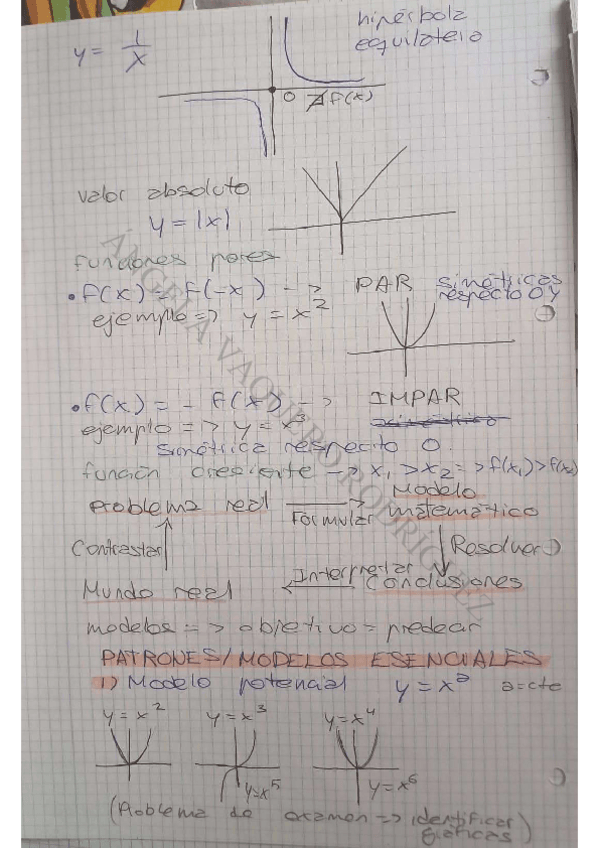 hipérbola
y = 1/x equilatera
0 f(x)
valor absoluto
y = |x|
funciones pares
• f(x) = f(-x) -> PAR simétricas respecto 0y
ejemplo => y = x²
• f(x) = - f(x) -> IMPAR
ejemplo => y = x³
simétrica respecto 0.
función creciente -> x₁ > x₂ => f(x₁) > f(x₂)
Problema real Formular Modelo matemático
Contrastar Resolver
Mundo real Interpretar Conclusiones
modelos => objetivo = predecir
PATRONES/MODELOS ESENCIALES
1) Modelo potencial y = xᵃ a=cte
y = x² y = x³ y = x⁴
y=x⁵ y = x⁶
(Problema de examen => identificar gráficas)
ÁNGELA VAQUERO RODRÍGUEZ